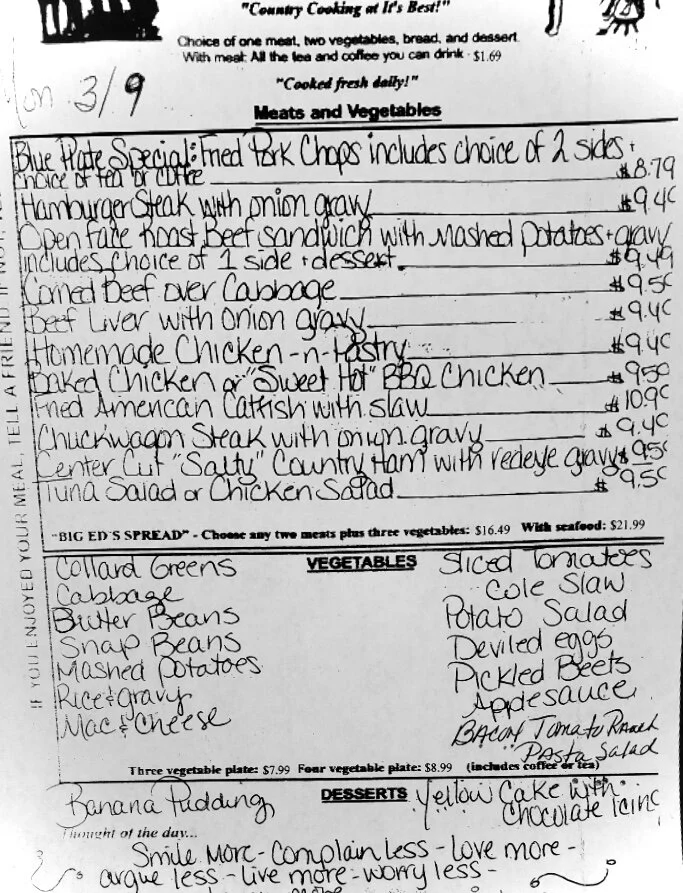 "Country Cooking at It's Best!"
Choice of one meat, two vegetables, bread, and dessert.
With meat: All the tea and coffee you can drink - $1.69
"Cooked fresh daily!"
Mon 3/9
Meats and Vegetables
Blue Plate Special: Fried Pork Chops includes choice of 2 sides +
choice of tea or coffee $8.79
Hamburger Steak with onion gravy $9.4
Open face Roast Beef sandwich with Mashed Potatoes + gravy
includes choice of 1 side + dessert. $9.49
Corned Beef over Cabbage $9.5
Beef Liver with onion gravy $9.4
Homemade Chicken-n-Pastry $9.4
Baked Chicken or "Sweet Hot" BBQ Chicken $9.50
Fried American Catfish with slaw $10.9
Chuckwagon Steak with onion gravy $9.4
Center Cut "Salty" Country Ham with redeye gravy $9.5
Tuna Salad or Chicken Salad $9.5
"BIG ED'S SPREAD" - Choose any two meats plus three vegetables: $16.49 With seafood: $21.99
VEGETABLES
Collard Greens
Cabbage
Butter Beans
Snap Beans
Mashed Potatoes
Rice & gravy
Mac & Cheese
Sliced Tomatoes
Cole Slaw
Potato Salad
Deviled eggs
Pickled Beets
Applesauce
Bacon Tomato Ranch
Pasta Salad
Three vegetable plate: $7.99 Four vegetable plate: $8.99 (includes coffee or tea)
DESSERTS
Banana Pudding
Yellow Cake with
Chocolate Icing
Thought of the day...
Smile More - Complain less - Love more -
argue less - live more - worry less -
IF YOU ENJOYED YOUR MEAL, TELL A FRIEND IF NOT,